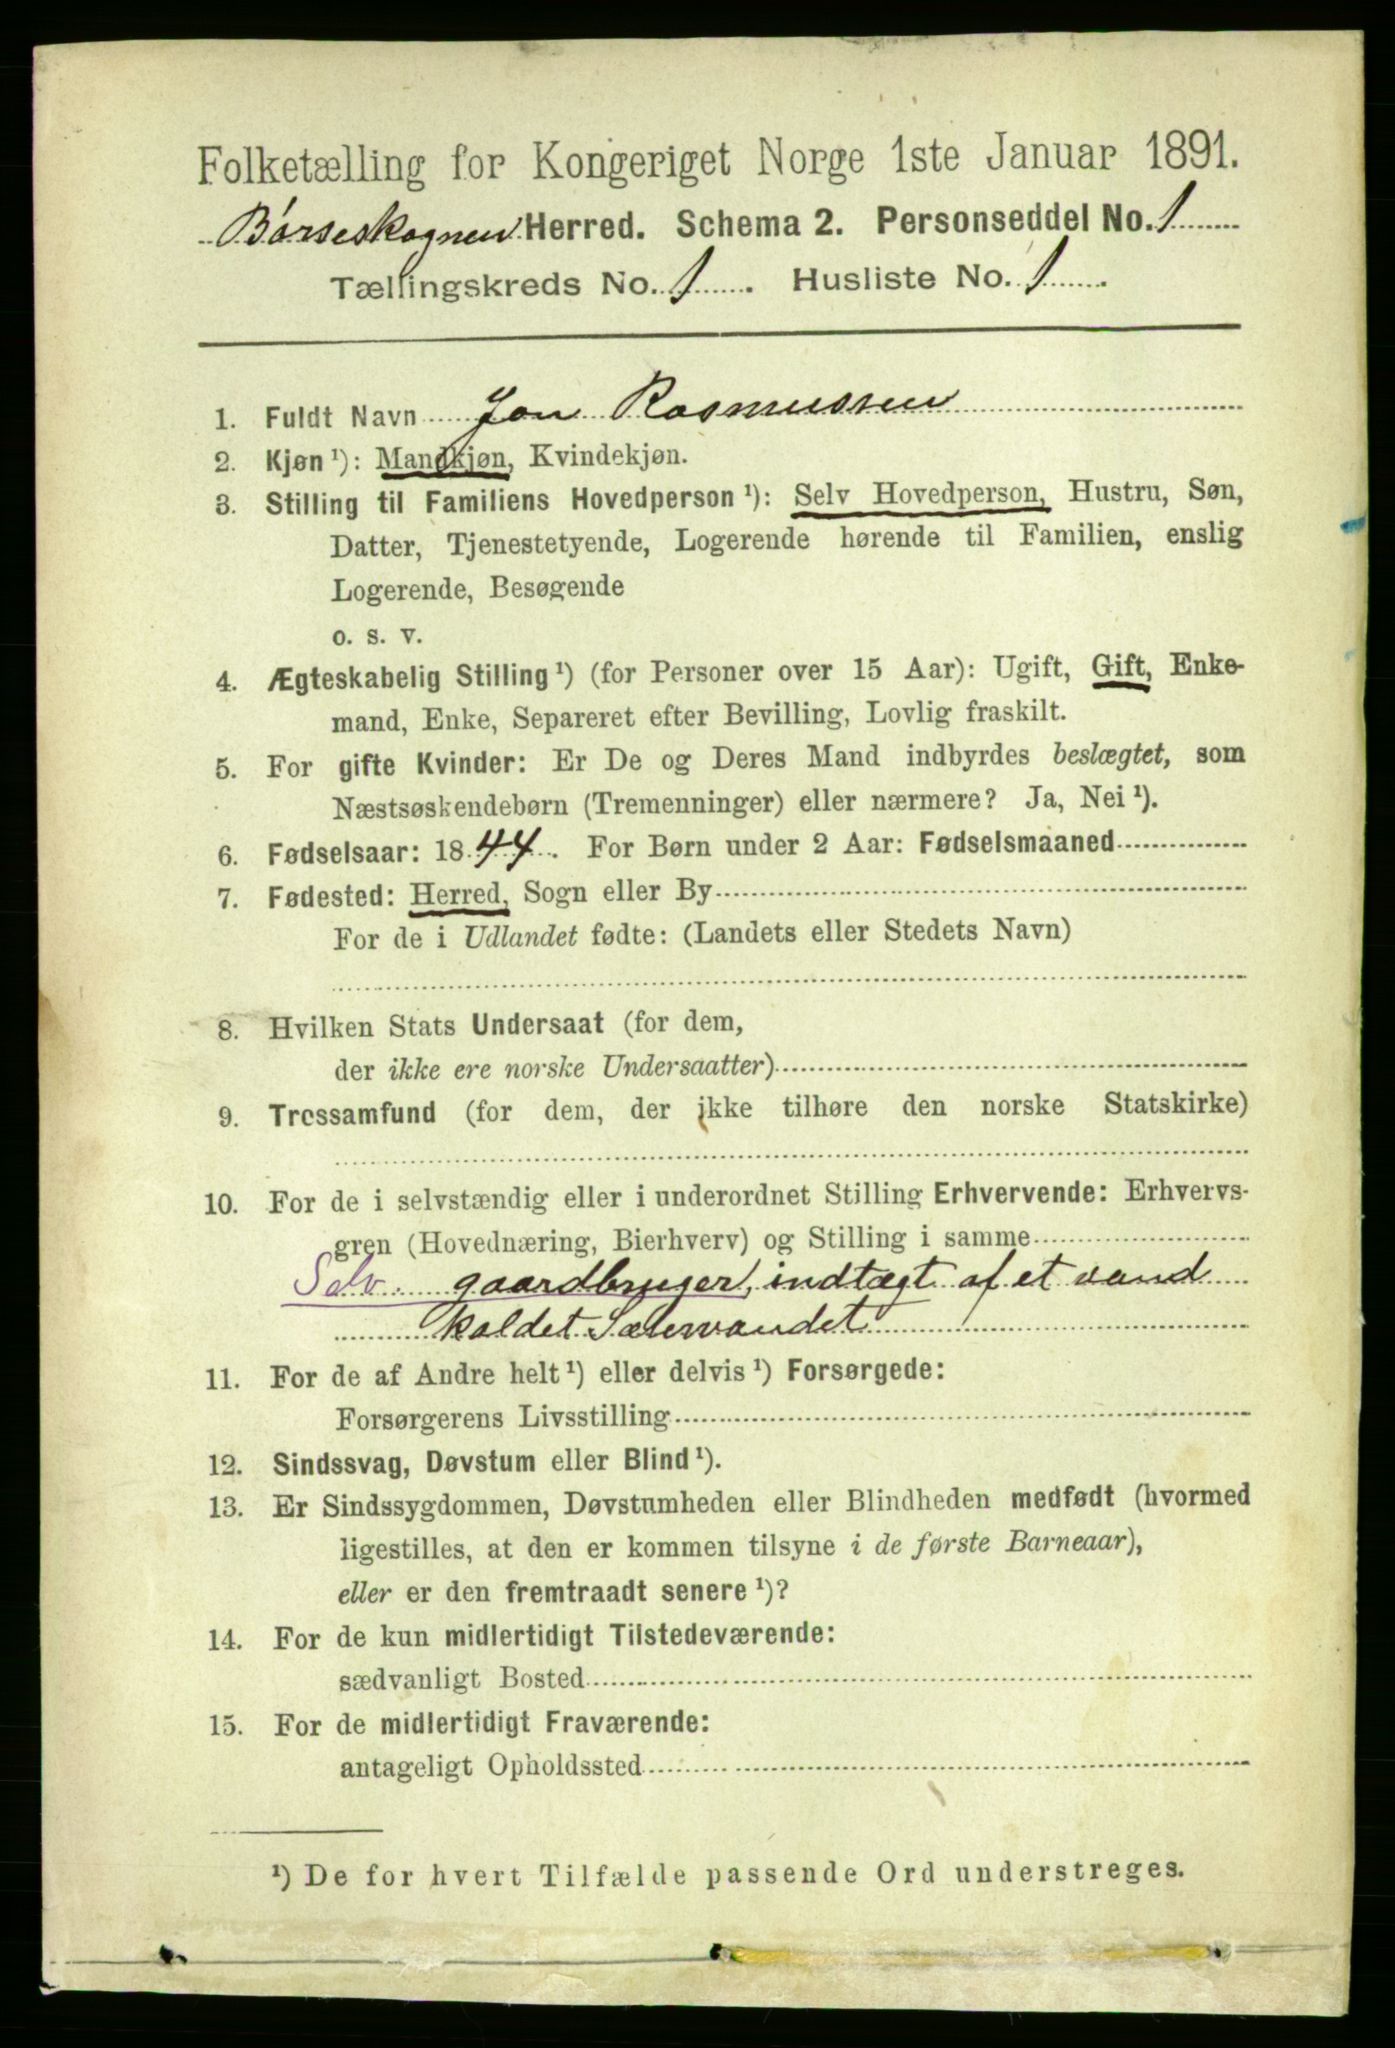 Folketælling for Kongeriget Norge 1ste Januar 1891.
Börseskognen Herred. Schema 2. Personseddel No. 1
Tællingskreds No. 1. Husliste No. 1.
1. Fuldt Navn Jon Rasmussen
2. Kjøn ¹): Mandkjøn, Kvindekjøn.
3. Stilling til Familiens Hovedperson ¹): Selv Hovedperson, Hustru, Søn,
Datter, Tjenestetyende, Logerende hørende til Familien, enslig
Logerende, Besøgende
o. s. v.
4. Ægteskabelig Stilling ¹) (for Personer over 15 Aar): Ugift, Gift, Enke-
mand, Enke, Separeret efter Bevilling, Lovlig fraskilt.
5. For gifte Kvinder: Er De og Deres Mand indbyrdes beslægtet, som
Næstsøskendebørn (Tremenninger) eller nærmere? Ja, Nei ¹).
6. Fødselsaar: 1844. For Børn under 2 Aar: Fødselsmaaned
7. Fødested: Herred, Sogn eller By
For de i Udlandet fødte: (Landets eller Stedets Navn)
8. Hvilken Stats Undersaat (for dem,
der ikke ere norske Undersaatter)
9. Trossamfund (for dem, der ikke tilhøre den norske Statskirke)
10. For de i selvstændig eller i underordnet Stilling Erhvervende: Erhvervs-
gren (Hovednæring, Bierhverv) og Stilling i samme
Selv. gaardbruger, indtægt af et vand
kaldet Sælervandet
11. For de af Andre helt ¹) eller delvis ¹) Forsørgede:
Forsørgerens Livsstilling
12. Sindssvag, Døvstum eller Blind ¹).
13. Er Sindssygdommen, Døvstumheden eller Blindheden medfødt (hvormed
ligestilles, at den er kommen tilsyne i de første Barneaar),
eller er den fremtraadt senere ¹)?
14. For de kun midlertidigt Tilstedeværende:
sædvanligt Bosted
15. For de midlertidigt Fraværende:
antageligt Opholdssted
¹) De for hvert Tilfælde passende Ord understreges.